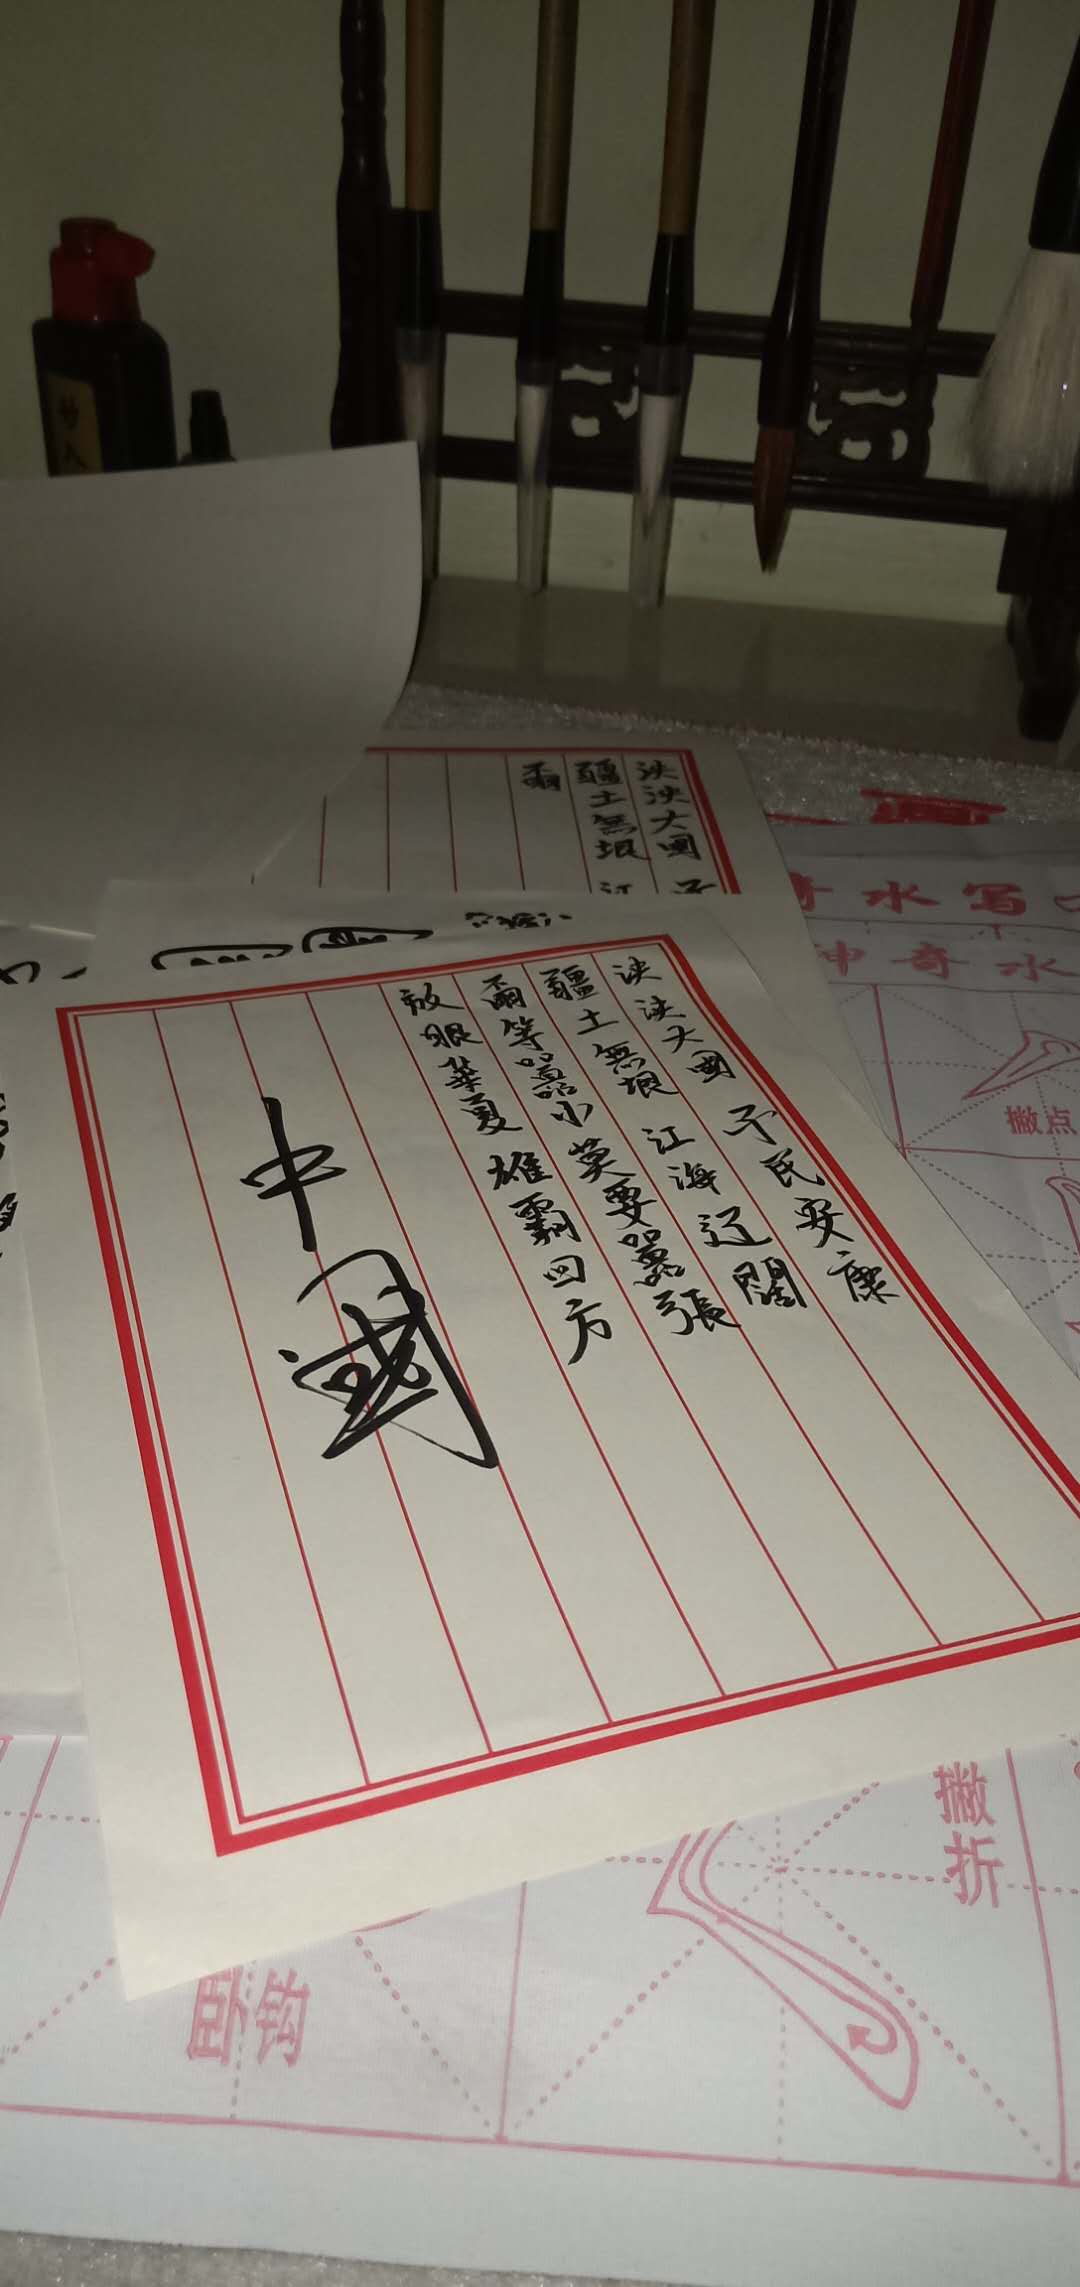 泱泱大國 子民安康
疆土無垠 江海遼闊
爾等嚣小 莫要嚣張
放眼華夏 雄霸四方
中國
泱泱大國 子
疆土無垠 江
爾
奇水写
神奇水
撇点
撇折
卧钩